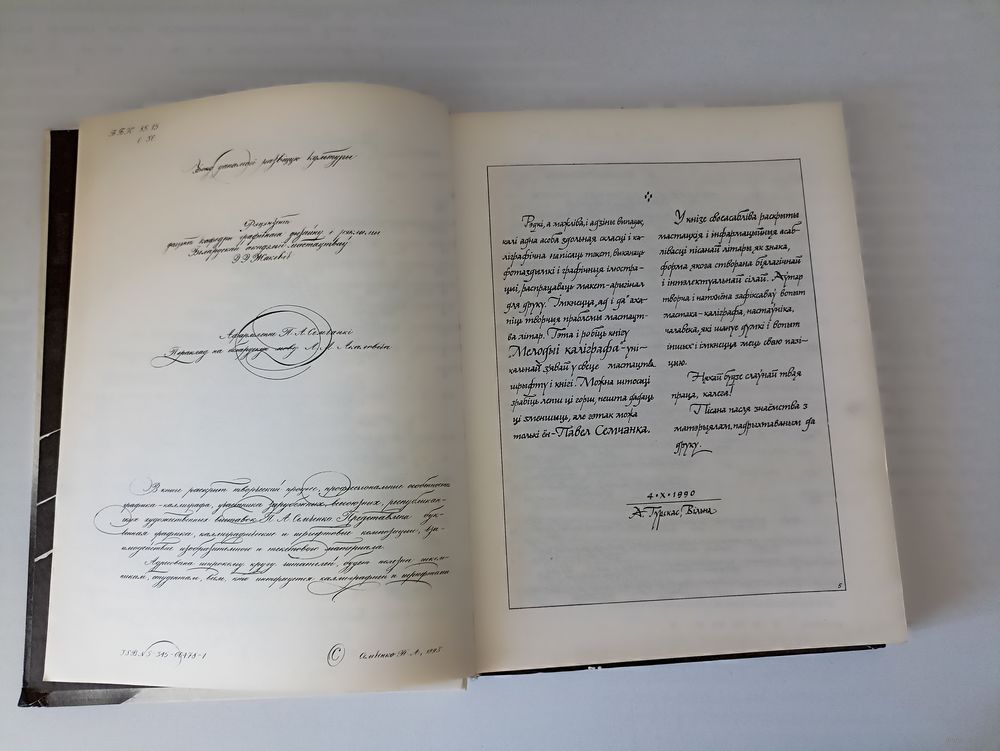 ББК 85.15
С 30
Фонд дапамогі развіццю культуры
Рэцэнзент
дацэнт кафедры графічнага дызайну і рэкламы
Беларускай акадэміі мастацтваў
Афармленне П. А. Семчанкі
Пераклад на беларускую мову
В книге раскрыт творческий процесс, профессиональные особенности
графика-каллиграфа, участника зарубежных, всесоюзных, республикан-
ских художественных выставок П. А. Семченко. Представлена бук-
венная графика, каллиграфические и шрифтовые композиции, вза-
имодействие изобразительного и текстового материала.
Адресована широкому кругу читателей, будет полезна школь-
никам, студентам, всем, кто интересуется каллиграфией и шрифтами
ISBN 5-345-00478-1
© Семченко П. А., 1995
Рэдкі, а мажліва, і адзіны выпадак,
калі адна асоба здольная скласці і ка-
ліграфічна напісаць тэкст, выканаць
фотаздымкі і графічныя ілюстра-
цыі, распрацаваць макет-арыгінал
для друку. Імкнецца, ад і да ахa-
піць творчыя праблемы мастацт-
ва літар. Гэта і робіць кнігу
Мелодыі каліграфа - уні-
кальнай з'явай у свеце мастацтв
шрыфту і кнігі. Можна штосьці
зрабіць лепш ці горш, нешта дадаць
ці зменшыць, але гэтак можа
толькі ён - Павел Семчанка.
У кнізе своеасабліва раскрыты
мастацкія і інфармацыйныя асаб-
лівасці пісанай літары, як знака,
форма якога створана біялагічнай
і інтэлектуальнай сілай. Аўтар
творча і натхнёна зафіксаваў вопыт
мастака-каліграфа, настаўніка,
чалавека, які шануе думкі і вопыт
іншых і імкнецца мець сваю пазі-
цыю.
Няхай будзе слаўнай твая
праца, калега!
Пісана пасля знаёмства з
матэрыялам, падрыхтаваным да
друку.
4·X·1990
А. Гурскас, Вільня
5